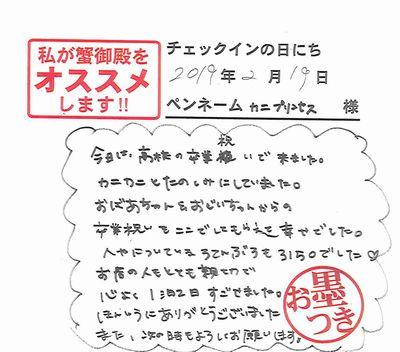 私が蟹御殿を
オススメ
します!!
チェックインの日にち
2019年2月19日
ペンネーム カニプリンセス 様
祝
今日は、高校の卒業いで来ました。
カニカニとたのしみにしていました。
おばあちゃん&おじいちゃんからの
卒業祝いをここでしてもらえて幸せでした。
へやについているろてんぶろも3150でした♡
お店の人もとても親切で
心よく1泊2日すごせました。
ほんとうにありがとうございました
また、次の時もよろしくお願いします。
お墨つき